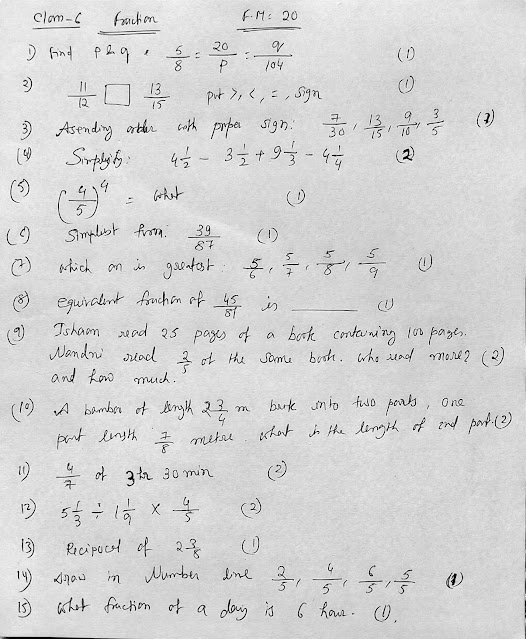 Class-6 Fraction F.M: 20
1) Find p & q. 5/8 = 20/p = q/104 (1)
2) 11/12 □ 13/15 put >, <, =, sign (1)
3) Asending order with proper sign: 7/30, 13/15, 9/10, 3/5 (1)
(4) Simplify: 4 1/2 - 3 1/2 + 9 1/3 - 4 1/4 (2)
(5) (4/5)^4 = what (1)
(6) Simplest from. 39/87 (1)
(7) which on is greatest: 5/6, 5/7, 5/8, 5/9 (1)
(8) equivalent fraction of 45/81 is ______ (1)
(9) Ishaan read 25 pages of a book containing 100 pages.
Nandni read 2/5 of the same book. who read more? (2)
and how much.
(10) A bamboo of length 2 3/4 m into two parts, one
part length 7/8 metre. what is the length of 2nd part. (2)
11) 4/7 of 3 hr 30 min (2)
12) 5 1/3 ÷ 1 1/9 × 4/5 (2)
13) Recipocel of 2 3/8 (1)
14) draw in Number line 2/5, 4/5, 6/5, 5/5 (1)
15) what fraction of a day is 6 hour. (1).